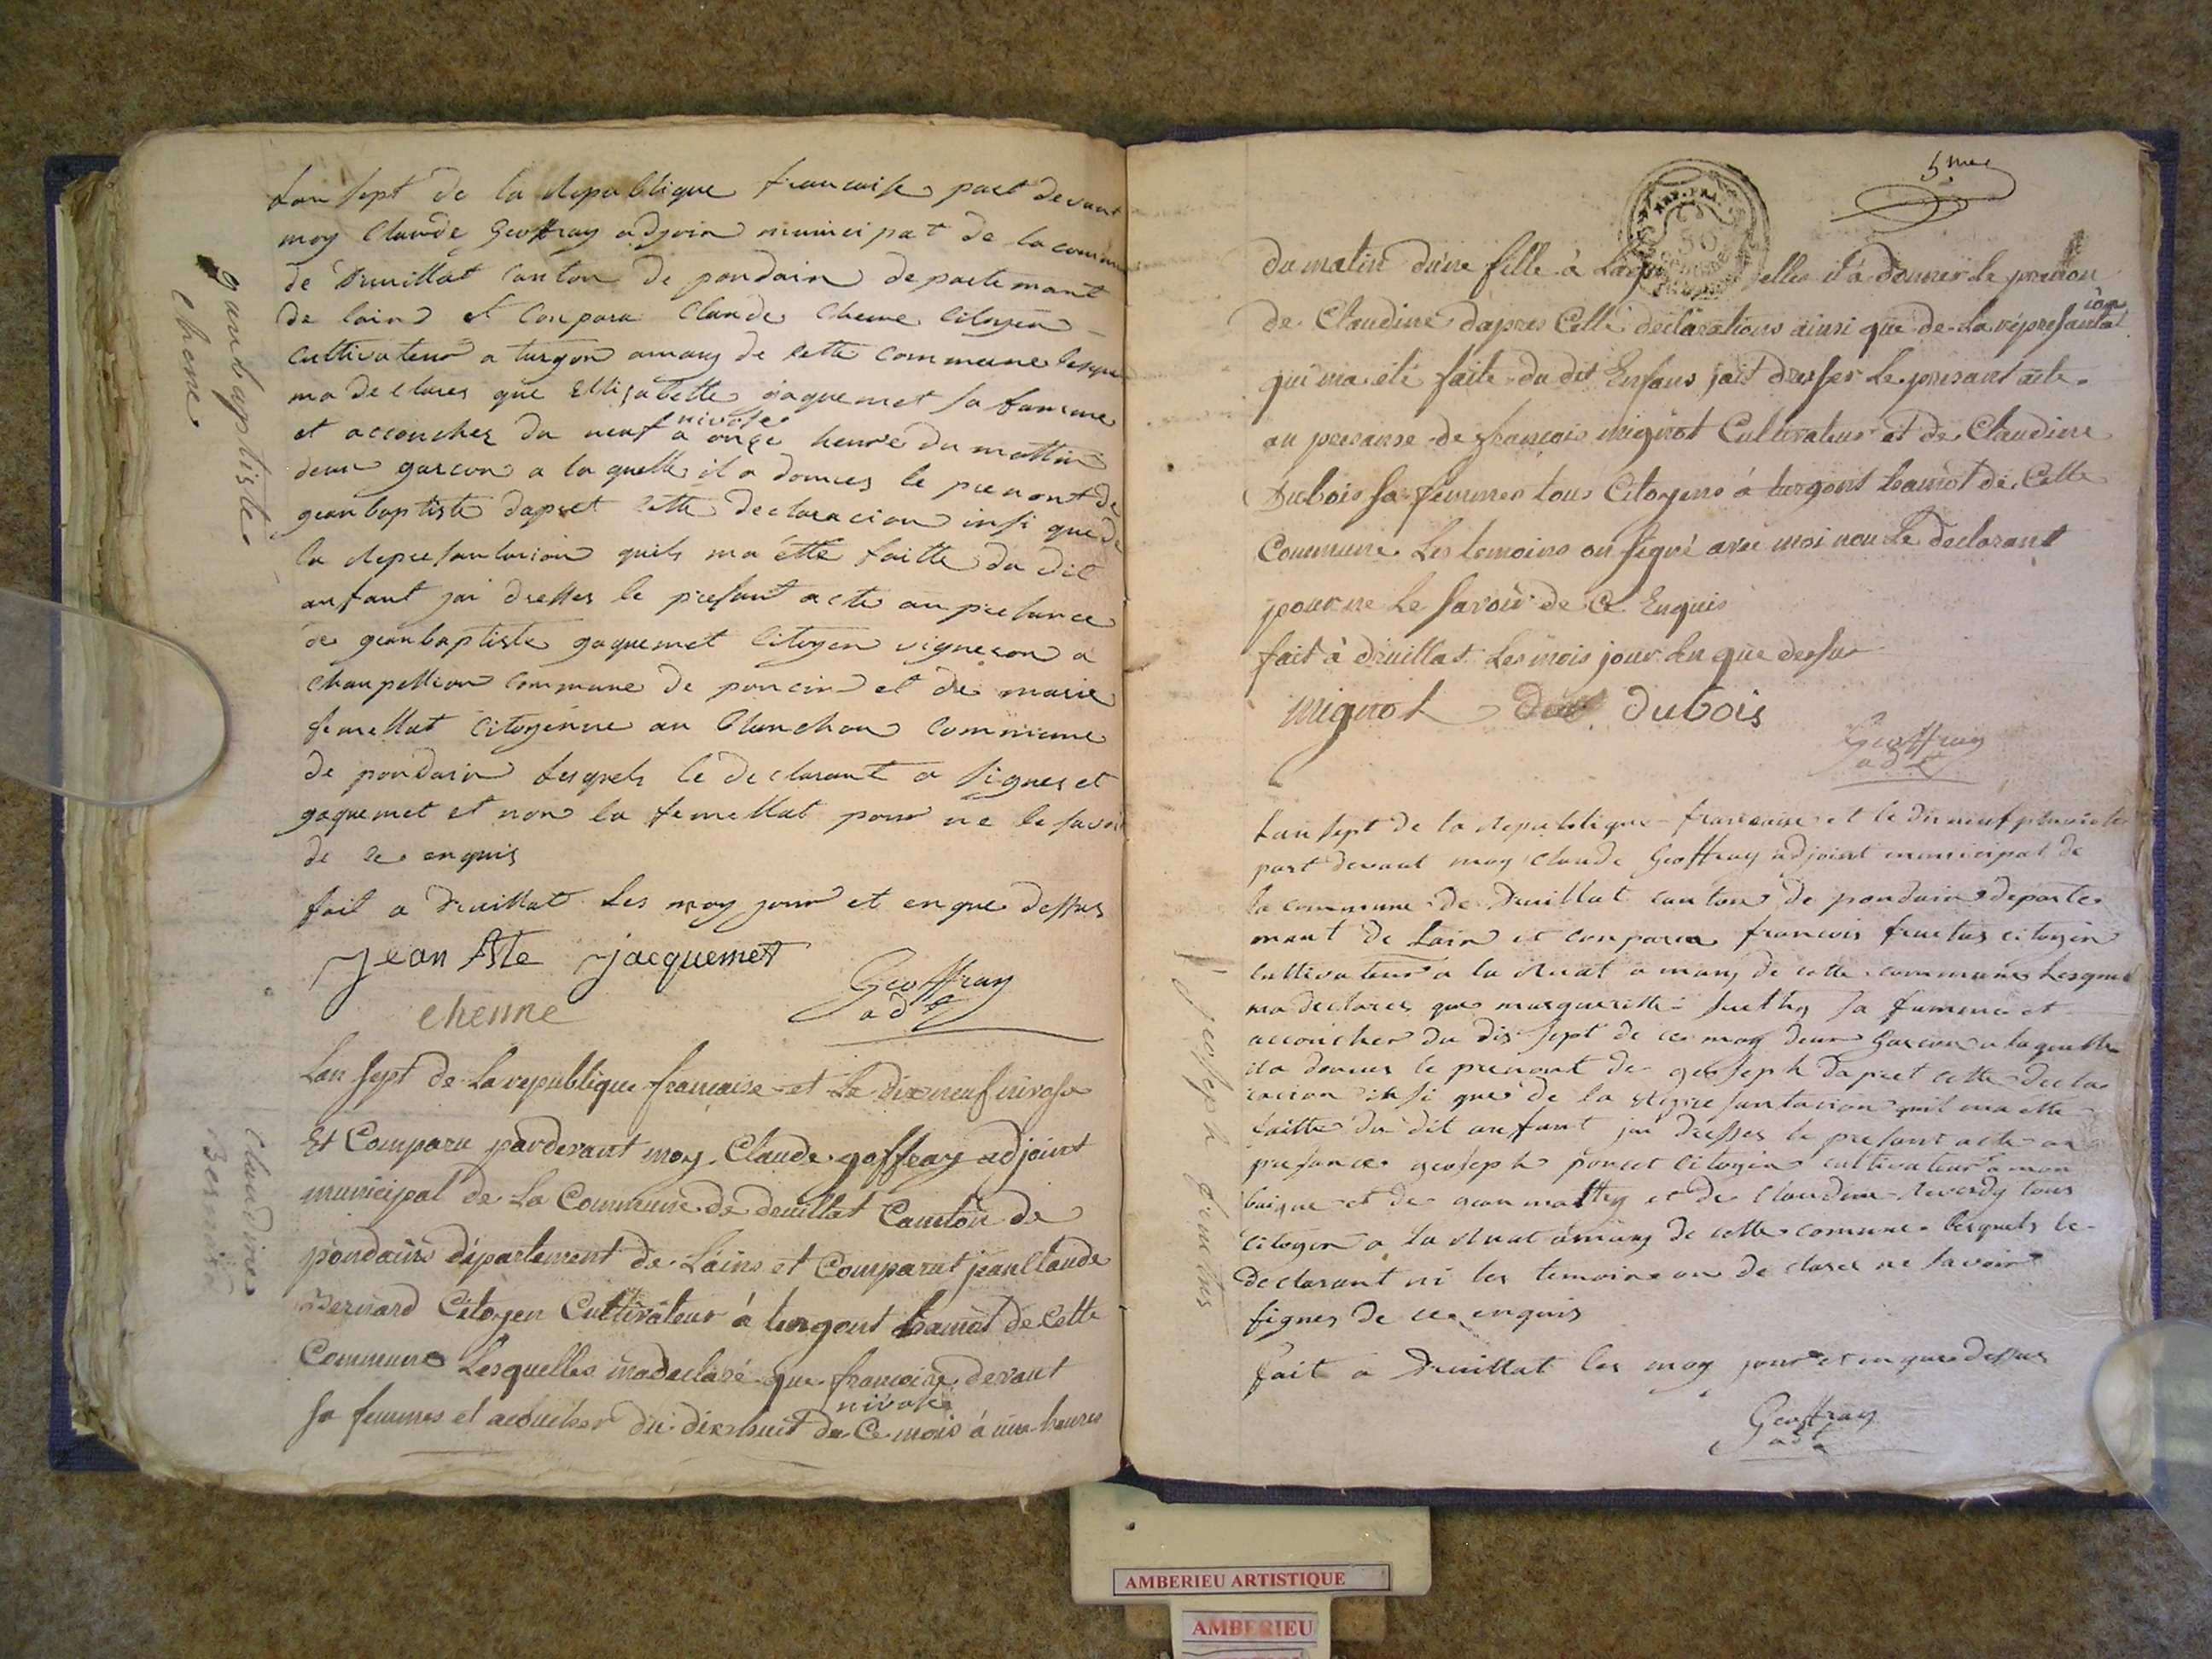 Lan sept de la Republique francaise part devant
moy Claude Geoffray adjoin municipat de la commu
de Druillat canton de pondain departemant
de lain et Conparu Claude Chene Citoyen
cultivateur a turgon amaux de cette commune lesque
ma declares que Ellisabette jaquemet sa famme
et accoucher du neuf nivose a onze heure du mattin
deun garcon a laquelle il a donnes le prenont de
geanbaptiste dapret cette declaracion insi que de
la Represantacion quils ma ette faitte du dit
anfant jai dresses le presant acte an presance
de geanbaptiste gaquemet Citoyen vigneron a
Champellion commune de poncin et de marie
femellat Citoyenne au blanchon Commune
de pondain Lesquels le declarant a signes et
gaquemet et non la femellat pour ne le savoir
de ce enquis
fait a Druillat Les moy jour et enque dessus
Jean Bte Jacquemet
chenne
Geoffray
adt
geanbaptiste
Chene
Lan sept de La republique francaise et Le dix neuf nivose
Et Comparu pardevant moy Claude goffray adjoint
municipal de La Commune de druillat Canton de
pondains departement de Lains et Comparut jeanClaude
Bernard Citoyen Cultivateur à turgont hamot de Cette
Commune Lesquelles ma declaré que francoise devant
sa femmes et acoucher du dix huit de Ce mois nivose à une heures
Claudine
Bernard
5me
REP. FRA.
50
du matin dune fille à Laquelles il à donner le prenon
de Claudine dapres Cette declarations ainsi que de La représantation
qui ma été faite du dit Enfans jait dresser Le presant acte
au presanse de francois mignot Cultivateur et de Claudine
Dubois sa femmes tous Citoyens à turgont hamot de Cette
Commune Les temoins on signé avec moi non Le declarant
pour ne Le savoir de Ce Enquis
fait à druillat Les mois jour An que dessus
mignot dubois
Geoffray
adt
Lan sept de la Republique francaise et le dix neuf pluviose
part devant moy Claude Geoffray adjoint municipat de
la commune de Druillat canton de pondain departe
mant de Lain et conparu francois fructus citoyen
cultivateur a la Ruat amaux de cette commune Lesquel
ma declares que margueritte sa famme et
accoucher du dix sept de ce moy deun Garcon a laquelle
il a donnes le prenont de geoseph dapret cette decla
racion insi que de la Represantacion quil ma ette
faitte du dit anfant jai dresses le presant acte an
presance geoseph poncet citoyen cultivateur a mon
baigue et de gean mattey et de Claudine Reverdy tous
citoyen a la Ruat amaux de cette comune lesquels le
declarant ni les temoins on declarer ne savoir
signes de ce enquis
fait a Druillat les moy jour et enque dessus
Geoffray
adt
geoseph fructus
AMBERIEU ARTISTIQUE
AMBERIEU